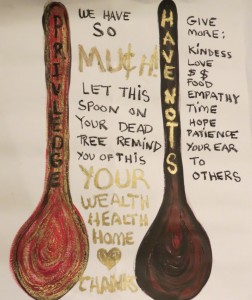 PRIVEDGE
WE HAVE
SO
MUCH!
LET THIS
SPOON ON
YOUR DEAD
TREE REMIND
YOU OF THIS
YOUR
WEALTH
HEALTH
HOME
HAVE NOTS
GIVE
MORE:
KINDESS
LOVE
$$
FOOD
EMPATHY
TIME
HOPE
PATIENCE
YOUR EAR
TO
OTHERS